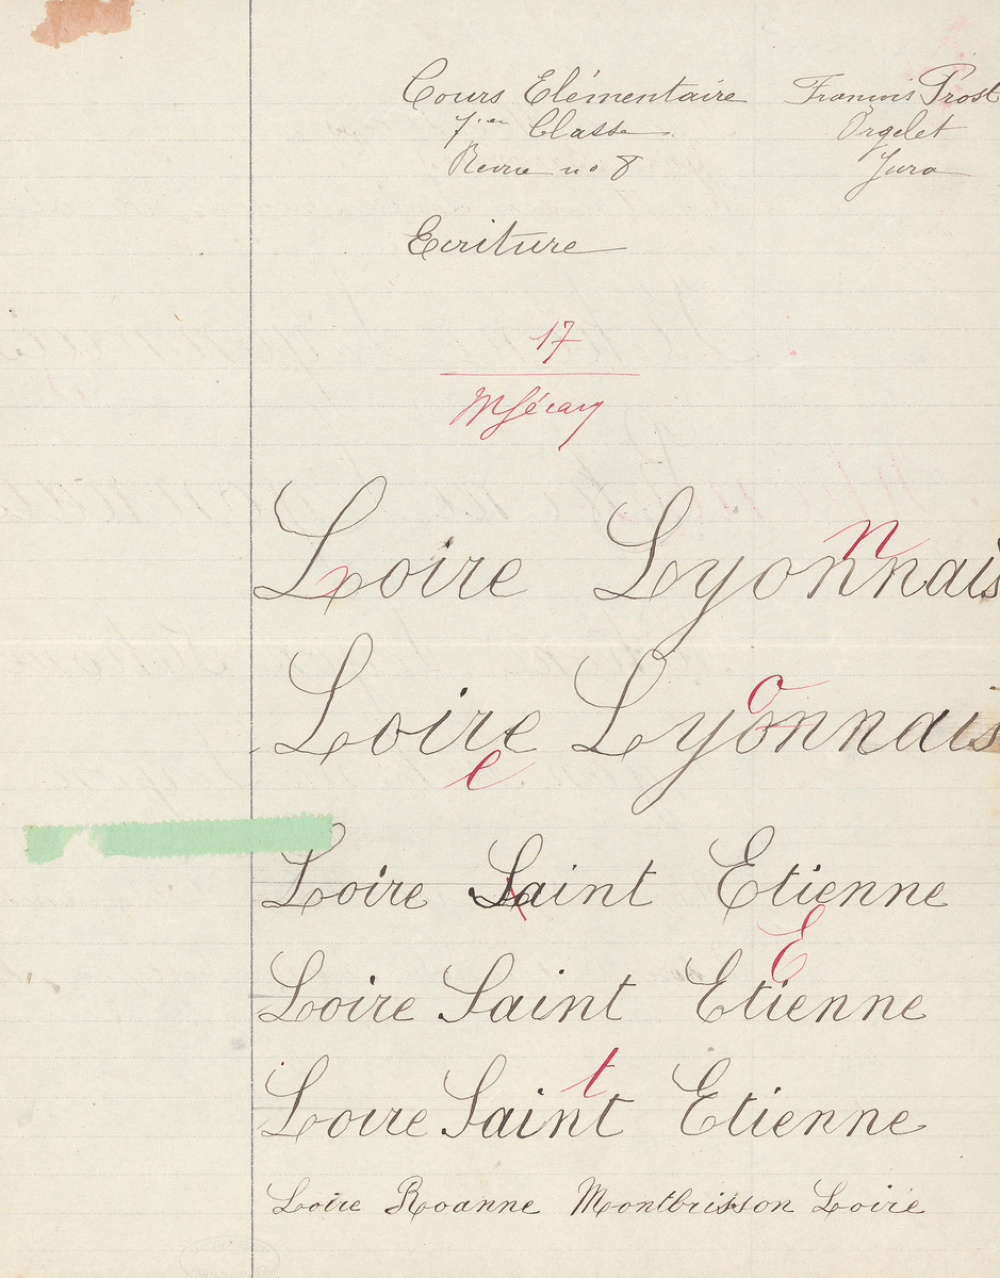 Cours Elémentaire François Prost
7.ème Classe Orgelet
Revue n° 8 Jura
Ecriture
17
Loire Lyonnais
n
Loire Lyonnais
o
e
Loire Saint Etienne
E
Loire Saint Etienne
t
Loire Saint Etienne
Loire Roanne Montbrisson Loire